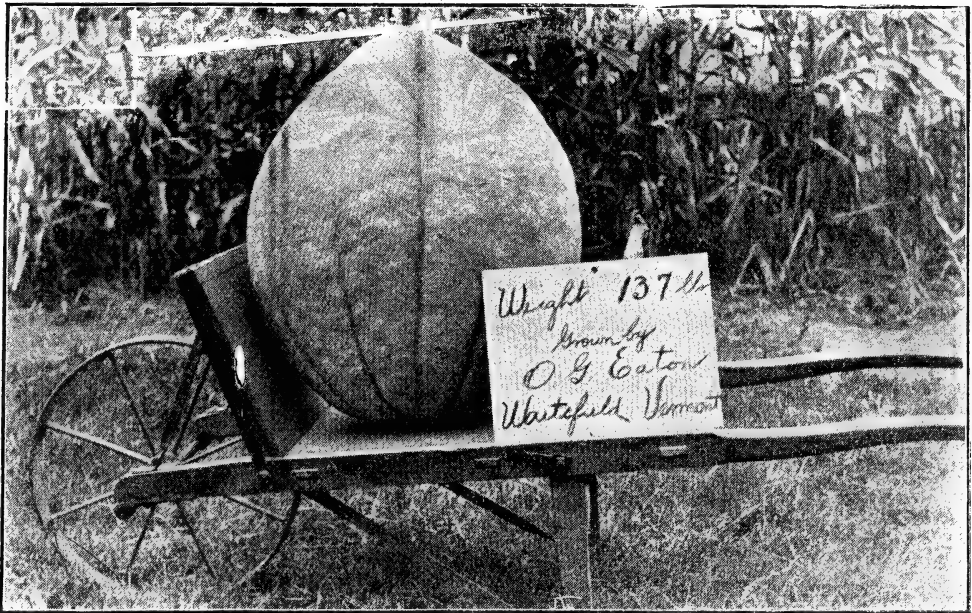 Weight 137 lbs
Grown by
O G Eaton
Waitsfield Vermont